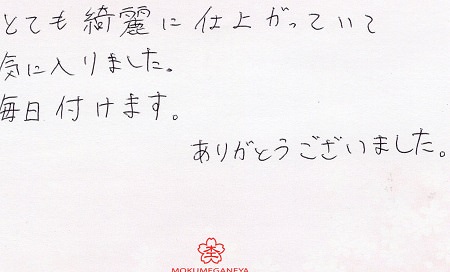 とても綺麗に仕上がっていて
気に入りました。
毎日付けます。
ありがとうございました。
杢
MOKUMEGANEYA